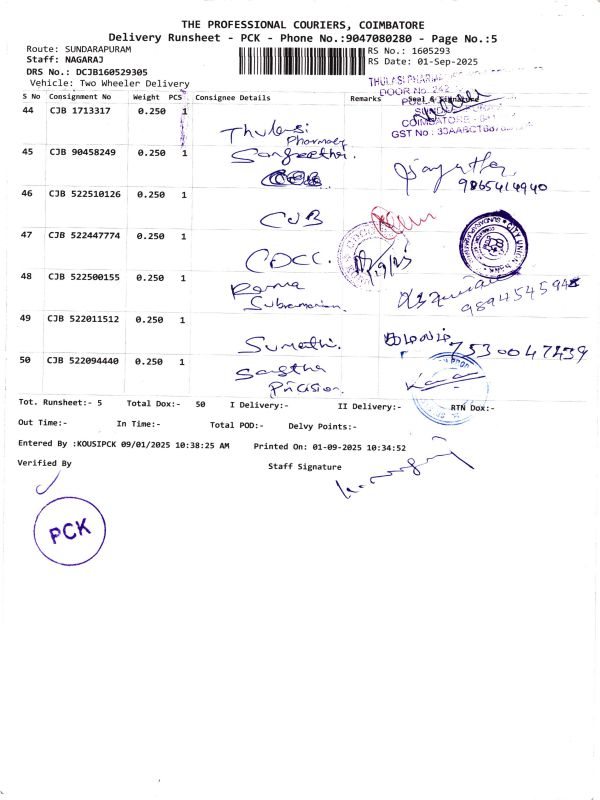 THE PROFESSIONAL COURIERS, COIMBATORE
Delivery Runsheet - PCK - Phone No.:9047080280 - Page No.:5
Route: SUNDARAPURAM
RS No.: 1605293
Staff: NAGARAJ
RS Date: 01-Sep-2025
DRS No.: DCJB160529305
Vehicle: Two Wheeler Delivery
THULASI PHARMA
DOOR NO. 242
S No Consignment No Weight PCS Consignee Details Remarks Seal & Signature
44 CJB 1713317 0.250 1 Thulasi Pharmacy
COIMBATORE - 641
GST No : 33AABCT
45 CJB 90458249 0.250 1 Sangeetha.
9865414940
46 CJB 522510126 0.250 1 CUB
CITY UNION BANK
47 CJB 522447774 0.250 1 CDCC.
48 CJB 522500155 0.250 1 Rama Subramanian.
49 CJB 522011512 0.250 1 Sumathi.
7530047239
50 CJB 522094440 0.250 1 Sastha Pricision.
Tot. Runsheet:- 5 Total Dox:- 50 I Delivery:- II Delivery:- RTN Dox:-
Out Time:- In Time:- Total POD:- Delvy Points:-
Entered By :KOUSIPCK 09/01/2025 10:38:25 AM Printed On: 01-09-2025 10:34:52
Verified By Staff Signature
PCK